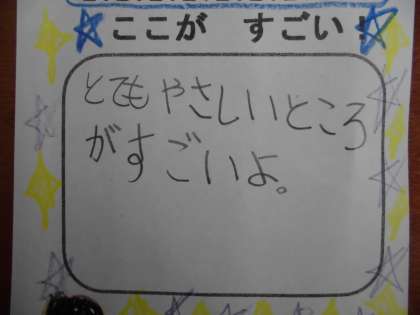 ここが すごい!
とてもやさしいところ
がすごいよ。